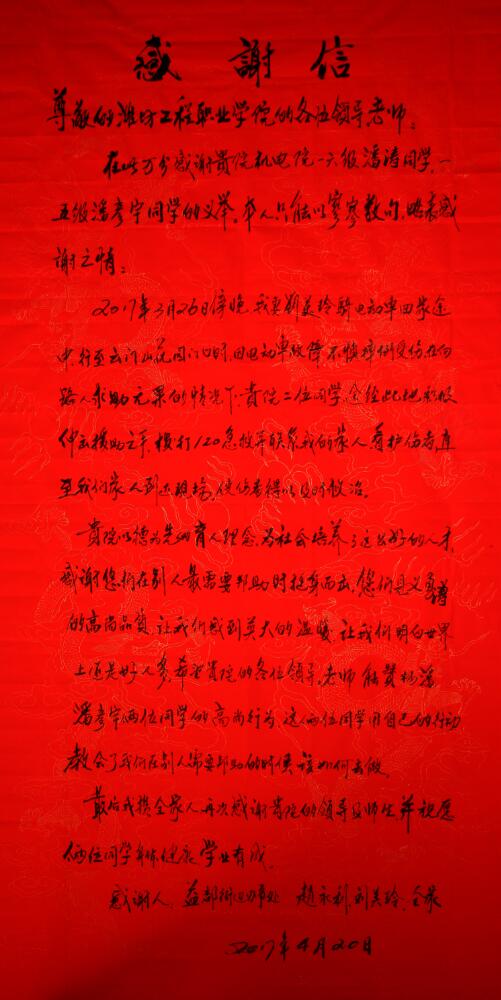 感謝信
尊敬的潍坊工程职业学院的各位领导老师：
在此万分感谢贵院机电院一六级潘涛同学，一
五级潘孝宇同学的义举，本人只能以寥寥数句，略表感
谢之情。
2017年3月26日傍晚，我妻刘美玲骑电动车回家途
中，行至云门山花园门口时，因电动车故障不慎摔倒受伤，在向
路人求助无果的情况下，贵院二位同学，全经此地积极
伸出援助之手，拨打120急救并联系我的家人，看护伤者，直
至我们家人到达现场，使伤者得以及时救治。
贵院以德为先的育人理念，为社会培养了这么好的人才，
感谢您们在别人最需要帮助时挺身而出，您们见义勇
的高尚品質，让我们感到莫大的温暖，让我们明白世界
上还是好人多，希望贵院的各位领导，老师能赞扬潘
潘孝宇两位同学的高尚行为，这两位同学用自己的行动
教会了我们在别人需要帮助的时侯该如何去做。
最后我携全家人再次感谢贵院的领导及师生，并祝愿
两位同学身体健康，学业有成。
感谢人：益都街道办事处 赵永利，刘美玲，全家
2017年4月20日